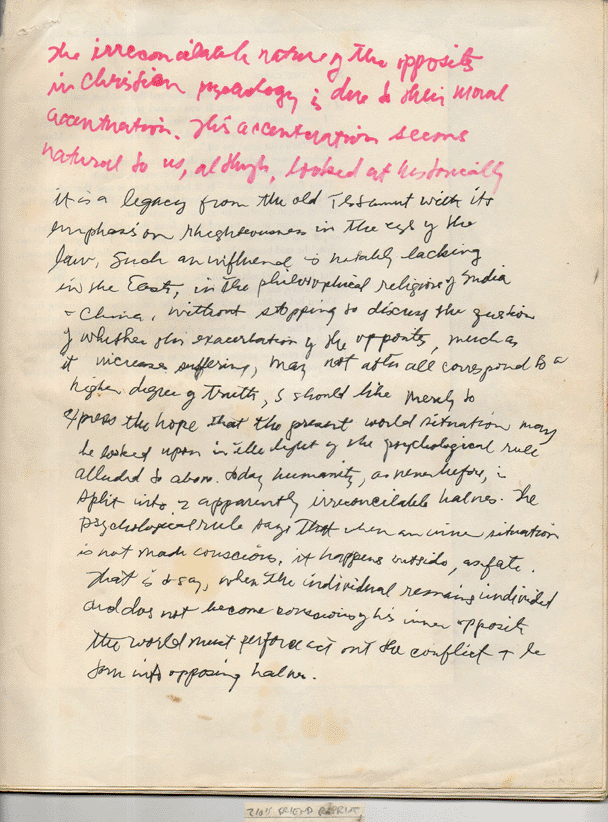 The irreconcilable nature of the opposits
in Christian psychology is due to their moral
accentuation. This accentuation seems
natural to us, although, looked at historically
it is a legacy from the old Testament with its
emphasis on rhighteousness in the eyes of the
law. Such an influence is notably lacking
in the East, in the philosophical religions of India
+ China. Without stopping to discuss the question
of whether this exacerbation of the opposits, much as
it increases suffering, may not after all correspond to a
higher degree of truth, I should like merely to
express the hope that the present world situation may
be looked upon in the light of the psychological rule
alluded to above. Today humanity, as never before, is
split into 2 apparently irreconcilable halves. The
psychological rule says that when an inner situation
is not made conscious, it happens outside, as fate.
That is to say, when the individual remains undivided
and does not become conscious of his inner opposits
the world must perforce act out the conflict + be
torn into opposing halves.
FRIEND